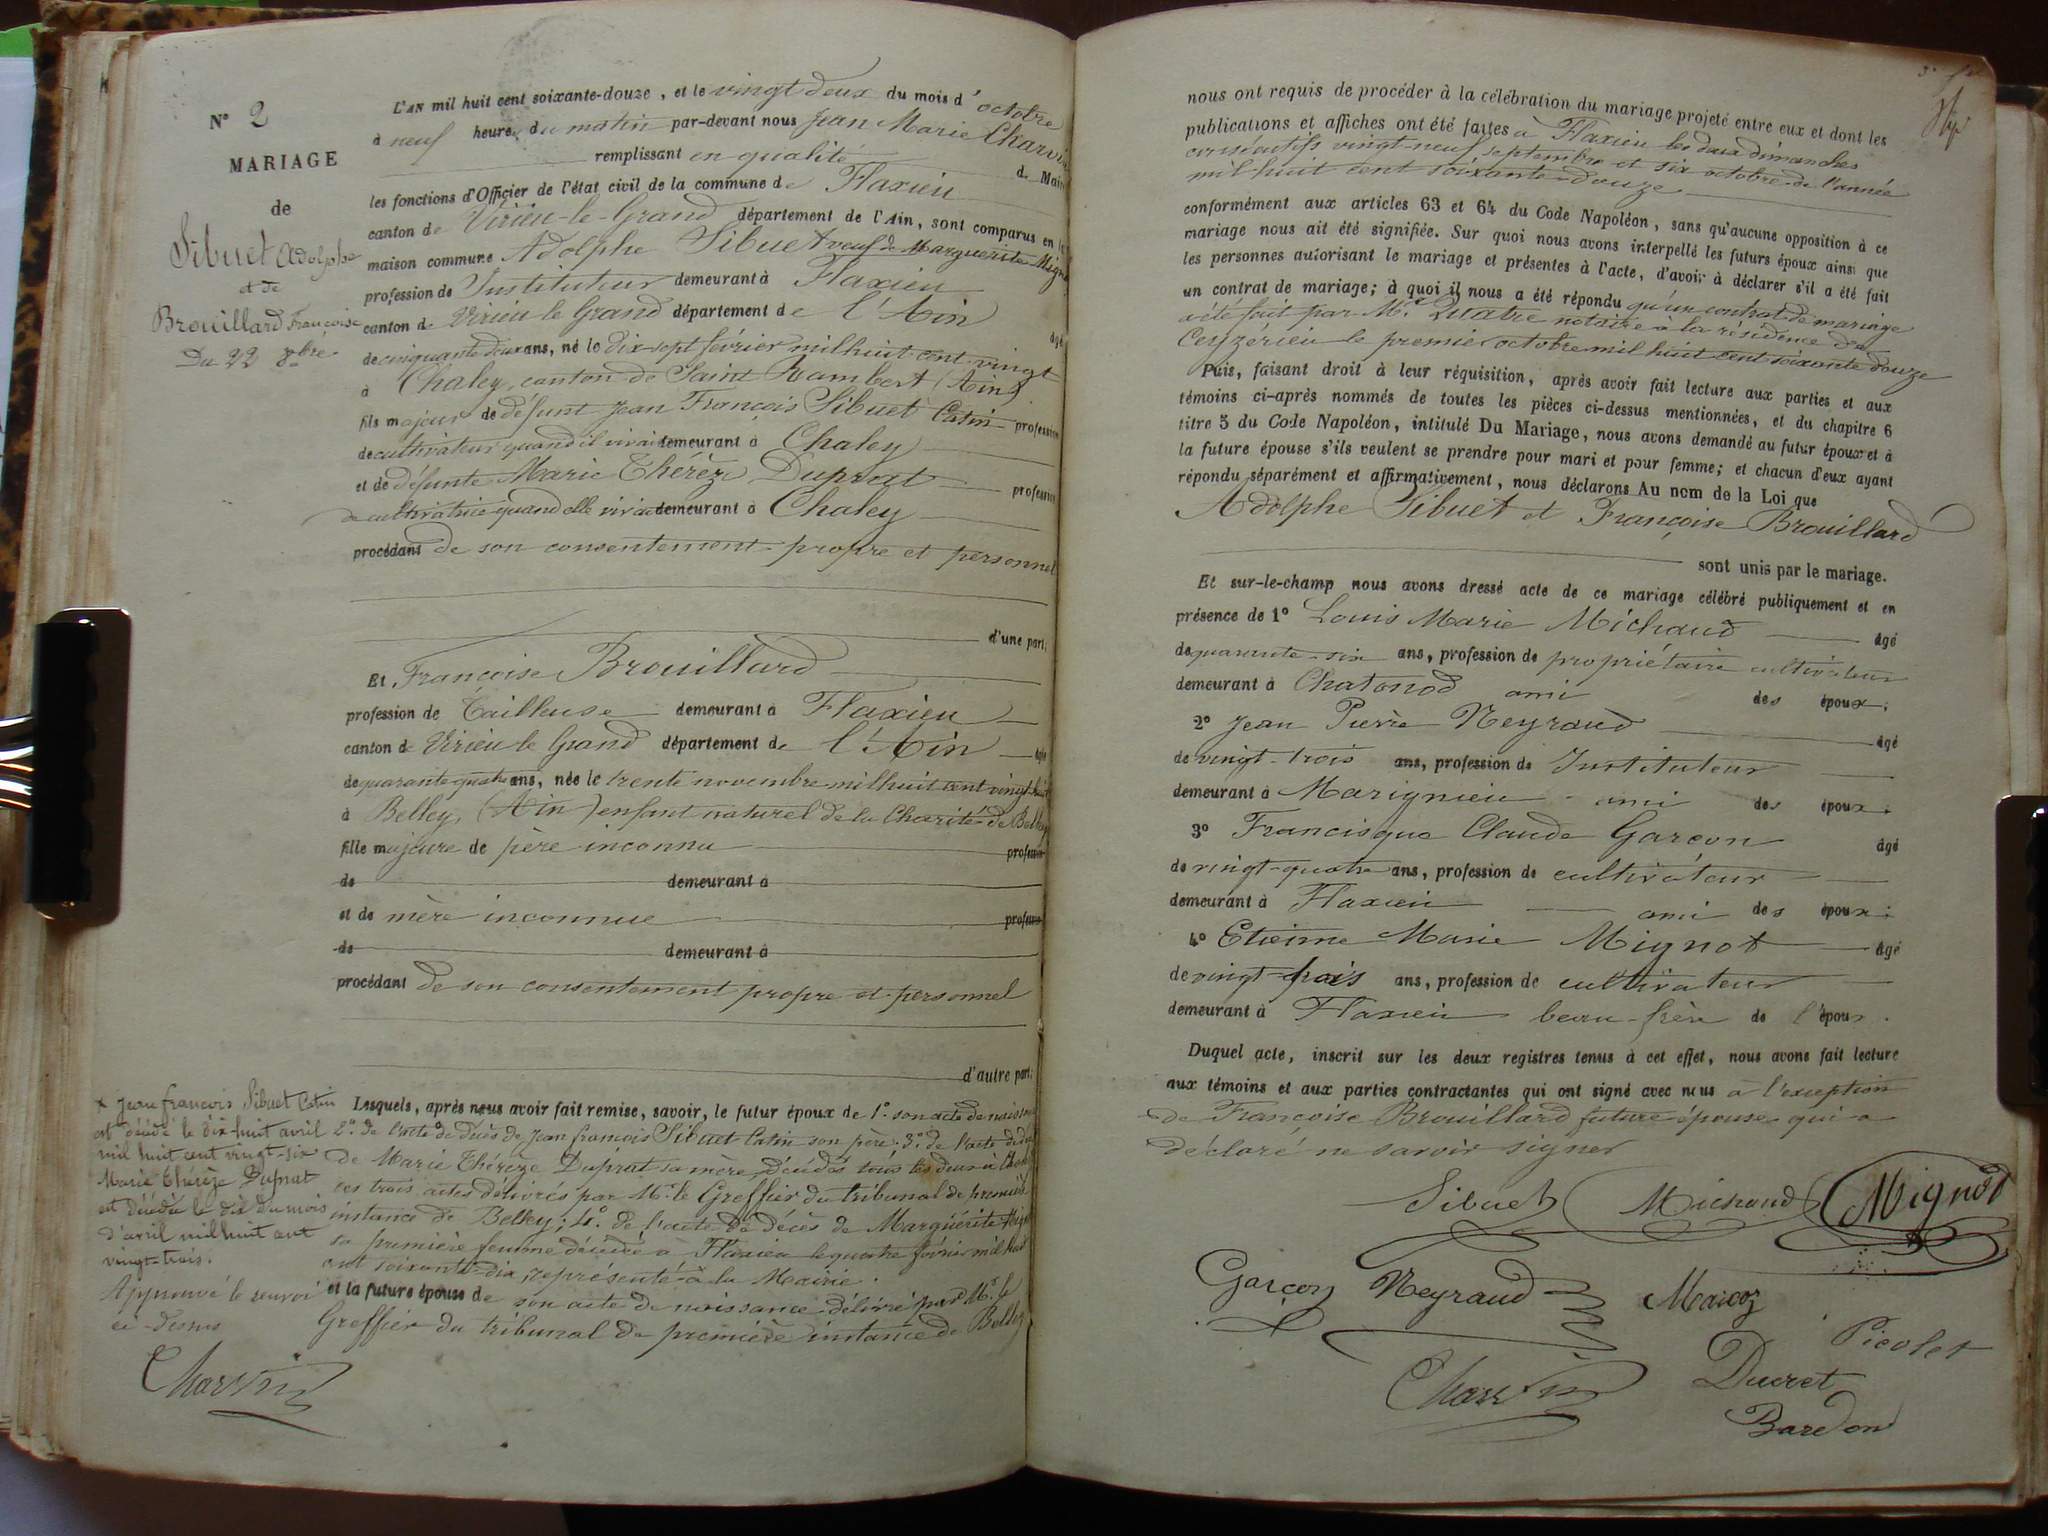 N° 2
MARIAGE
de
Sibuet Adolphe
et de
Brouillard Françoise
Du 22 8bre
L'AN mil huit cent soixante-douze, et le vingt deux du mois d'octobre
à neuf heures du matin par-devant nous Jean Marie Charvin
remplissant en qualité de Maire
les fonctions d'Officier de l'état civil de la commune de Flaxieu
canton de Virieu-le-Grand département de l'Ain, sont comparus en la
maison commune Adolphe Sibuet veuf de Marguerite Mignot
profession de Instituteur demeurant à Flaxieu
canton de Virieu le Grand département de l'Ain âgé
de cinquante deux ans, né le dix-sept février mil huit cent vingt
à Chaley, canton de Saint Rambert (Ain)
fils majeur de défunt Jean François Sibuet Catin profession
de cultivateur quand il vivait demeurant à Chaley
et de défunte Marie Thérèze Duprat profession
de cultivatrice quand elle vivait demeurant à Chaley
procédant de son consentement propre et personnel
d'une part;
Et Françoise Brouillard
profession de Tailleuse demeurant à Flaxieu
canton de Virieu le Grand département de l'Ain âgée
de quarante quatre ans, née le trente novembre mil huit cent vingt-huit
à Belley, (Ain) enfant naturel de la Charité de Belley
fille majeure de père inconnu profession
de demeurant à
et de mère inconnue profession
de demeurant à
procédant de son consentement propre et personnel
d'autre part;
Lesquels, après nous avoir fait remise, savoir, le futur époux de 1° son acte de naissance
2° de l'acte de décès de Jean françois Sibuet Catin son père. 3° de l'acte de décès
de Marie Thérèze Duprat sa mère, décédés tous les deux à Chaley
ces trois actes délivrés par Mr le Greffier du tribunal de première
instance de Belley; 4° de l'acte de décès de Marguérite Mignot
sa première femme décédée à Flaxieu le quatre février mil huit
cent soixante-dix, représenté à la Mairie.
et la future épouse de son acte de naissance délivré par Mr le
Greffier du tribunal de première instance de Belley
x Jean françois Sibuet Catin
est décédé le dix-huit avril
mil huit cent vingt-six
Marie Thérèze Duprat
est décédée le dix du mois
d'avril mil huit cent
vingt-trois.
Approuvé le renvoi
ci-dessus
Charvin
nous ont requis de procéder à la célébration du mariage projeté entre eux et dont les
publications et affiches ont été faites à Flaxieu les deux dimanches
consécutifs vingt-neuf septembre et six octobre de l'année
mil huit cent soixante-douze
conformément aux articles 63 et 64 du Code Napoléon, sans qu'aucune opposition à ce
mariage nous ait été signifiée. Sur quoi nous avons interpellé les futurs époux ainsi que
les personnes autorisant le mariage et présentes à l'acte, d'avoir à déclarer s'il a été fait
un contrat de mariage; à quoi il nous a été répondu qu'un contrat de mariage
a été fait par Me Quatre notaire à la résidence de
Ceyzérieu le premier octobre mil huit cent soixante douze
Puis, faisant droit à leur réquisition, après avoir fait lecture aux parties et aux
témoins ci-après nommés de toutes les pièces ci-dessus mentionnées, et du chapitre 6
titre 5 du Code Napoléon, intitulé Du Mariage, nous avons demandé au futur époux et à
la future épouse s'ils veulent se prendre pour mari et pour femme; et chacun d'eux ayant
répondu séparément et affirmativement, nous déclarons Au nom de la Loi que
Adolphe Sibuet et Françoise Brouillard
sont unis par le mariage.
Et sur-le-champ nous avons dressé acte de ce mariage célébré publiquement et en
présence de 1° Louis Marie Michaud âgé
de quarante-six ans, profession de propriétaire cultivateur
demeurant à Chatonod ami des époux;
2° Jean Pierre Neyraud âgé
de vingt-trois ans, profession de Instituteur
demeurant à Marignieu ami des époux;
3° Francisque Claude Garçon âgé
de vingt-quatre ans, profession de cultivateur
demeurant à Flaxieu ami des époux;
4° Etienne Marie Mignot âgé
de vingt-trois ans, profession de cultivateur
demeurant à Flaxieu beau-frère de l'époux.
Duquel acte, inscrit sur les deux registres tenus à cet effet, nous avons fait lecture
aux témoins et aux parties contractantes qui ont signé avec nous à l'exception
de Françoise Brouillard future épouse qui a
déclaré ne savoir signer
Sibuet Michaud Mignot
Garçon Neyraud Marcoz
Picolet
Charvin Ducret
Bardon